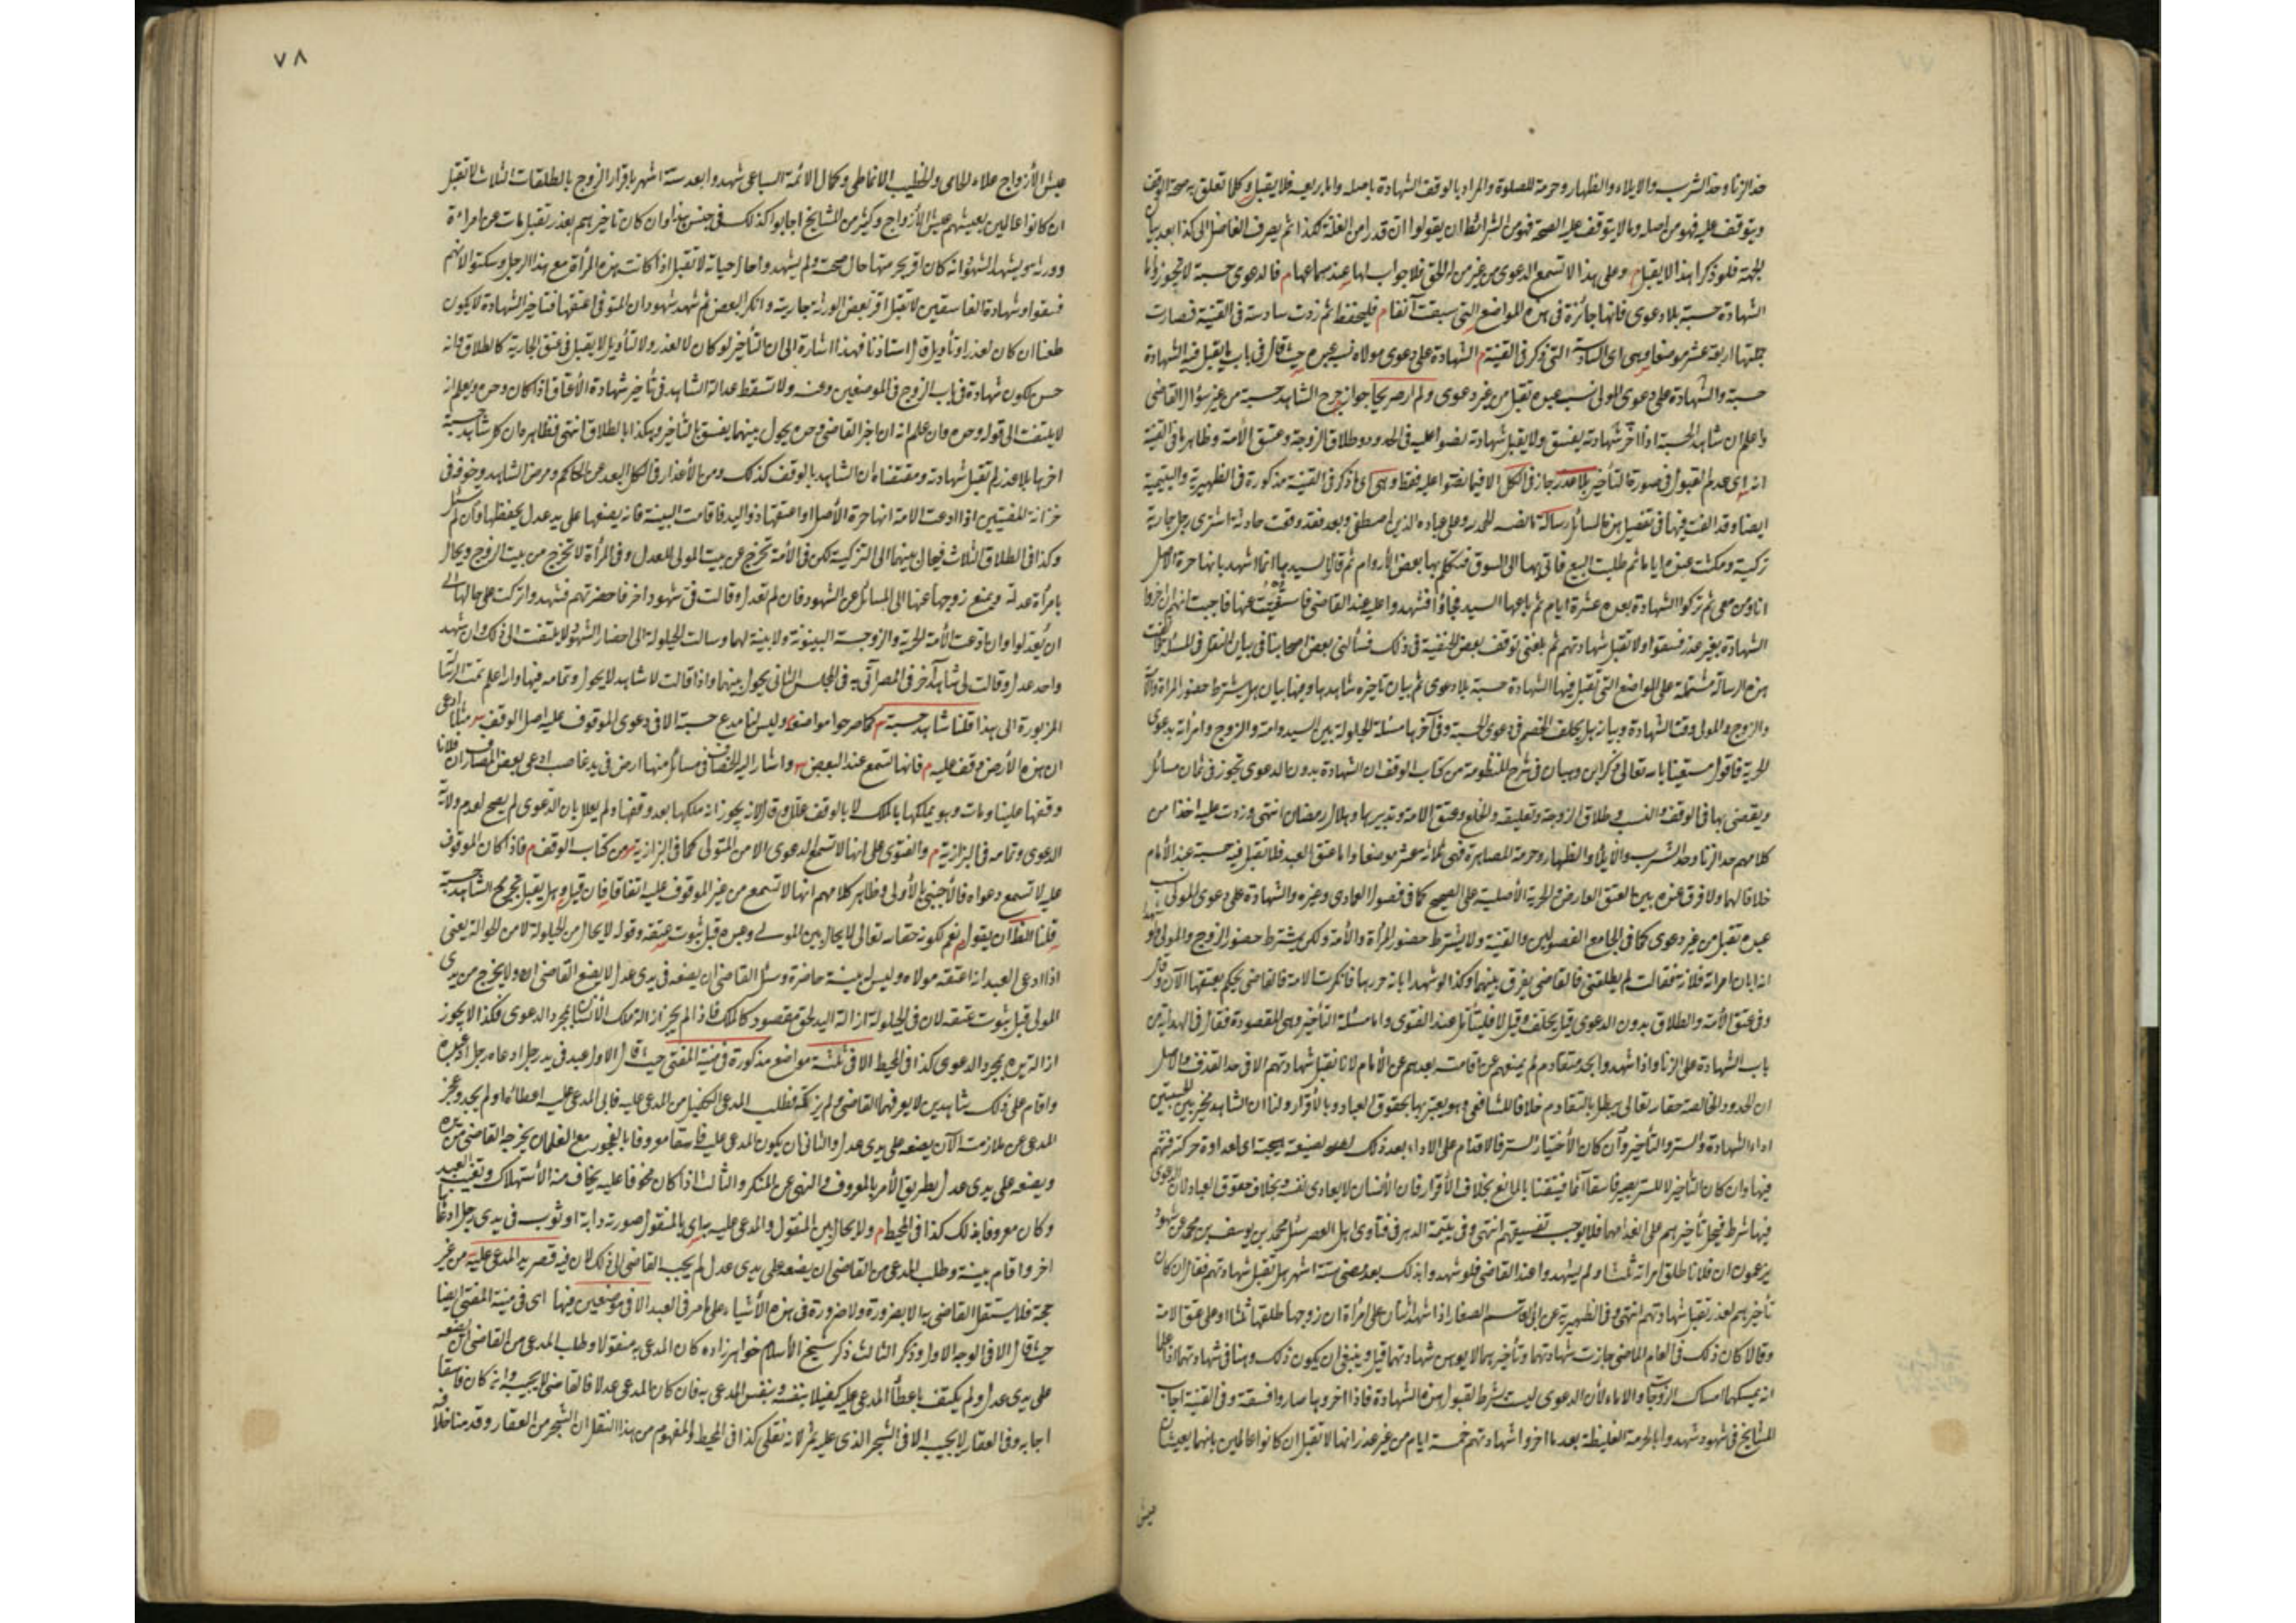 حد الزنا وحد الشرب والايلاء والظهار وحرمة المصاهرة والمراد بالوقف الشهادة باصله واما بريعه فلا يقبل وكلما تعلق به صحة الوقف
ويتوقف عليه فهو من اصله وما لا يتوقف عليه الصحة فهو من الشرائط ان يقولوا ان قدرا من الغلة لكذا ثم يصرف الفاضل الى كذا بعد بيان
الجهة فلو ذكرا هذا لا يقبل م وعلى هذا لا تسمع الدعوى من غير من له الحق فلا جواب لها عند سماعها م فالدعوى حسبة لا تجوز واما
الشهادة حسبة بلا دعوى فانها جائزة في هذه المواضع التى سبقت آنفا م فليحفظ ثم زدت سادسة في القنية فصارت
جملتها اربعة عشر موضعا وهى اى السادسة التى ذكر في القنية م الشهادة على دعوى مولاه نسب عبده حيث قال في باب ما يقبل فيه الشهادة
حسبة والشهادة على دعوى المولى نسب عبده تقبل من غير دعوى ولم ار صريحا جواز جرح الشاهد حسبة من غير سؤال القاضى
واعلم ان شاهد الحسبة اذا اخر شهادته يفسق ولا يقبل شهادته نصوا عليه في الحدود وطلاق الزوجة وعتق الأمة وظاهر ما في القنية
انه اى عدم القبول في صورة التأخير بلا عذر جاز في الكل الا فيما نصوا عليه فقط وهى اى ما ذكر في القنية مذكورة في الظهيرية واليتيمية
ايضا وقد الفت فيها في تفصيل هذه المسائل رسالة الحمد لله وعلى عباده الذين اصطفى وبعد فقد وقعت حادثة اشترى رجل جارية
تركية ومكثت عنده اياما ثم طلبت البيع فاتى بها الى السوق فتكلم بها بعض الأروام ثم قال لسيدها انما اشهد بانها حرة الاصل
انا ومن معى ثم تركوا الشهادة بعده عشرة ايام ثم باعها السيد فجاؤا فشهدوا عليه عند القاضى فاستفتيت عنها فاجبت انهم ان اخروا
الشهادة بغير عذر فسقوا ولا تقبل شهادتهم ثم بلغنى توقف بعض الحنفية في ذلك فسألنى بعض اصحابنا في بيان النقل في المسئلة فكتبت
هذه الرسالة مشتملة على المواضع التى تقبل فيها الشهادة حسبة بلا دعوى ثم بيان تاخيره شاهدها ومنها بيان هل يشترط حضور المراة والأمة
والزوج والمولى وقت الشهادة وبيان هل يحلف الخصم في دعوى الحسبة وفى آخرها مسئلة الحيلولة بين السيد وامته والزوج وامرأته بدعوى
الحرية فاقول مستعينا بالله تعالى ذكر ابن وهبان في شرح المنظومة من كتاب الوقف ان الشهادة بدون الدعوى تجوز في ثمان مسائل
ويقضى بها في الوقف والنسب وطلاق الزوجة وتعليقه والخلع وعتق الامة وتدبيرها وهلال رمضان انتهى وزدت عليه اخذا من
كلامهم حد الزنا وحد الشرب والايلاء والظهار وحرمة المصاهرة فهى ثلاثة عشر موضعا واما عتق العبد فلا تقبل فيه حسبة عند الأمام
خلافا لهما ولا فرق عنده بين العتق العارض والحرية الأصلية على الصحيح كما في فصول العمادى وغيره والشهادة على دعوى المولى نسب
عبده تقبل من غير دعوى كما في الجامع الفصولين والقنية ولا يشترط حضور المرأة والأمة ولكن يشترط حضور الزوج والمولى
انه ابان امراته فلانة فقالت لم يطلقنى فالقاضى يفرق بينهما وكذا لو شهدا بانه حررها فانكرت الامة فالقاضى يحكم بعتقها
وفى عتق الأمة والطلاق بدون الدعوى قيل يحلف وقيل لا فليتأمل عند الفتوى واما مسئلة التأخير وهى المقصودة فقال في الهداية من
باب الشهادة على الزنا واذا شهدوا بحد متقادم لم يمنعهم عن اقامته بعدهم عن الأمام لا تقبل شهادتهم الا في حد القذف والاصل
ان الحدود الخالصة حقا لله تعالى يبطل بالتقادم خلافا للشافعى وهو يعتبر بها بحقوق العباد وبالأقرار ولنا ان الشاهد مخير بين الحسبتين
اداء الشهادة والستر والتأخير وأن كان الأختيار الستر فالاقدام على الاداء بعد ذلك لضغينة هيجته اى لعداوة حركته فيتهم
فيها وان كان التأخير لا للستر يصير فاسقا آثما فيتقنا بالمانع بخلاف الأقرار فان الأنسان لا يعادى نفسه وبخلاف حقوق العباد لان الدعوى
فيها شرط فيحل تأخيرهم على انعدامها فلا يوجب تفسيقهم انتهى وفى يتيمة الدهر في فتاوى اهل العصر سئل محمد بن يوسف بن محمد عن شهود
يزعمون ان فلانا طلق امراته ثلثا ولم يشهدوا عند القاضى فلو شهدوا بذلك بعد مضى ستة اشهر هل تقبل شهادتهم فقال ان كان
تأخيرهم لعذر تقبل شهادتهم انتهى وفى الظهيرية عن ابى القاسم الصفار اذا شهد اثنان على امرأة ان زوجها طلقها ثلثا او على عتق الامة
وقالا كان ذلك في العام الماضى جازت شهادتهما وتأخيرهما لا يوهن شهادتهما قيل وينبغى ان يكون ذلك وهنا في شهادتهما اذا علما
انه يمسكها امساك الزوجات والاماء لأن الدعوى ليست بشرط لقبول هذه الشهادة فاذا اخروها صاروا فسقة وفى القنية اجاب
المشايخ في شهود شهدوا بالحرمة الغليظة بعد ما اخروا شهادتهم خمسة ايام من غير عذر انها لا تقبل ان كانوا عالمين بانهما يعيشان
عيش
٧٨
عيش الأزواج علاء الحمامى والخطيب الانماطى وكمال الائمة البياعى شهدوا بعد ستة اشهر باقرار الزوج بالطلقات الثلاث لا تقبل
ان كانوا عالمين بعيشهم عيش الأزواج وكثير من المشايخ اجابوا كذلك في جنس هذا وان كان تاخيرهم بعذر تقبل مات عن امراءة
وورثة ويشهد الشهود انه كان اقر بحرمتها حال صحته ولم يشهدوا حال حياته لا تقبل اذا كانت هذه المرأة مع هذا الرجل وسكتوا لانهم
فسقوا وشهادة الفاسقين لا تقبل اقر بعض الورثة بجارية وانكر البعض ثم شهد شهود ان المتوفى اعتقها فتاخير الشهادة لا يكون
طعنا ان كان لعذر او تأويل قال استاذنا فهذا اشارة الى ان التأخير لو كان لا لعذر ولا لتأويل لا يقبل في عتق الجارية كالطلاق وانه
حسن لكون شهادة في باب الزوج في الموضعين وعنه ولا تسقط عدالة الشاهد في تأخير شهادة الأعتاق اذا كان وحده ويعلم انه
لا يلتفت الى قوله وحده وان علم انه ان اخبر القاضى وحده يحول بينهما يفسق بالتأخير وهكذا بالطلاق انتهى فظاهره ان كل شاهد حسبة
اخرها بلا عذر لم تقبل شهادته ومقتضاه ان الشاهد بالوقف كذلك ومن الأعذار في الكل البعد عن الحاكم ومرض الشاهد وخوفه في
خزانة المفتيين اذا ادعت الامة انها حرة الأصل او اعتقها ذو اليد فاقامت البينة فانه يضعها على يد عدل يحفظها وان لم
وكذا في الطلاق الثلاث فيحال بينهما الى التزكية لكن في الأمة تخرج عن بيت المولى للعدل وفى المرأة لا تخرج من بيت الزوج ويحال
بامرأة عدلة ويمنع زوجها عنها الى المسائل عن الشهود فان لم تعدل وقالت في شهود اخر فاحضرتهم فشهدوا تركت على حالها الى
ان يعدلوا وان ادعت الأمة الحرية والزوجة البينونة ولا بينة لهما وسالت الحيلولة الى احضار الشهود لا يلتفت الى ذلك وان شهد
واحد عدل وقالت لى شاهد آخر في المصر آتى به في المجلس الثانى يحول بينهما واذا قالت لا شاهد لا يحول وتمامه فيها والله اعلم تمت الرسالة
المزبورة الى هذا قلنا شاهد حسبة م كما صرحوا مواضعه وليس لنا مدع حسبة الا في دعوى الموقوف عليه اصل الوقف مثلا ادعى
ان هذه الأرض وقف عليه م فانها تسمع عند البعض واشار اليه الخصاف في مسائل منها ارض في يد غاصب ادعى بعض المصارف ان فلانا
وقفها علينا ومات وهو يملكها بالملك لا بالوقف علل وقال لانه يجوز انه ملكها بعد وقفها ولم يعلل بان الدعوى لم يصح لعدم ولاية
الدعوى وتمامه في البزازية م والفتوى على انها لا تسمع الدعوى الا من المتولى كما في البزازية من كتاب الوقف م فاذا كان الموقوف
عليه لا تسمع دعواه فالأجنبى بالأولى وظاهر كلامهم انها لا تسمع من غير الموقوف عليه اتفاقا فان قيل هل يقبل تجريح الشاهد حسبة
قلنا الظاهر ان يقول نعم لكونه حقا لله تعالى لا يحال بين المولى وعبده قبل ثبوت عتقه وقوله لا يحال من الحيلولة لا من الحوالة يعنى
اذا ادعى العبد انه اعتقه مولاه وليس له بينة حاضرة وسئل القاضى ان يضعه في يدى عدل لا يضع القاضى ولا يخرج من يدى
المولى قبل ثبوت عتقه لان في الحيلولة ازالة اليد لحق مقصود كالملك فاذا لم يجز ازالة ملك الأنسان بمجرد الدعوى فكذا لا يجوز
ازالة يده بمجرد الدعوى كذا في المحيط الا في ثلثة مواضع مذكورة في منية المفتى حيث قال الاول عبد في يد رجل ادعاه رجل
واقام على ذلك شاهدين لا يعرفهما القاضى ولم يزكه فطلب المدعى الكفيل من المدعى عليه فابى المدعى عليه اعطائه او لم يجد وعجز
المدعى عن ملازمته الآن يضعه على يدى عدل والثانى ان يكون المدعى عليه فاسقا معروفا بالفجور مع الغلمان يخرجه القاضى من يده
ويضعه على يدى عدل بطريق الأمر بالمعروف والنهى عن المنكر والثالث اذا كان مخوفا عليه يخاف منه الأستهلاك وتغييب العبد
وكان معروفا بذلك كذا في المحيط م ولا يحال بين المنقول والمدعى عليه به اى بالمنقول صورته دابة او ثوب في يدى رجل ادعاها
اخر واقام بينة وطلب المدعى من القاضى ان يضعه على يدى عدل لم يجب القاضى الى ذلك لان فيه قصر يد المدعى عليه من غير
حجة فلا يستقل القاضى به الا بضرورة ولا ضرورة في هذه الأشياء على ما مر في العبد الا في موضعين منها اى في منية المفتى ايضا
حيث قال الا في الوجه الاول وذكر الثالث ذكر شيخ الأسلام خواهر زاده كان المدعى به منقولا وطلب المدعى من القاضى ان يضعه
على يدى عدل ولم يكتف باعطاء المدعى عليه كفيلا بنفسه وبنفس المدعى به فان كان المدعى عدلا فالقاضى لا يجيبه وان كان فاسقا
اجابه وفى العقار لا يجيبه الا في الشجر الذى عليه ثمر لانه نقلى كذا في المحيط والمفهوم من هذا النقل ان الشجر من العقار وقد منا خلافه